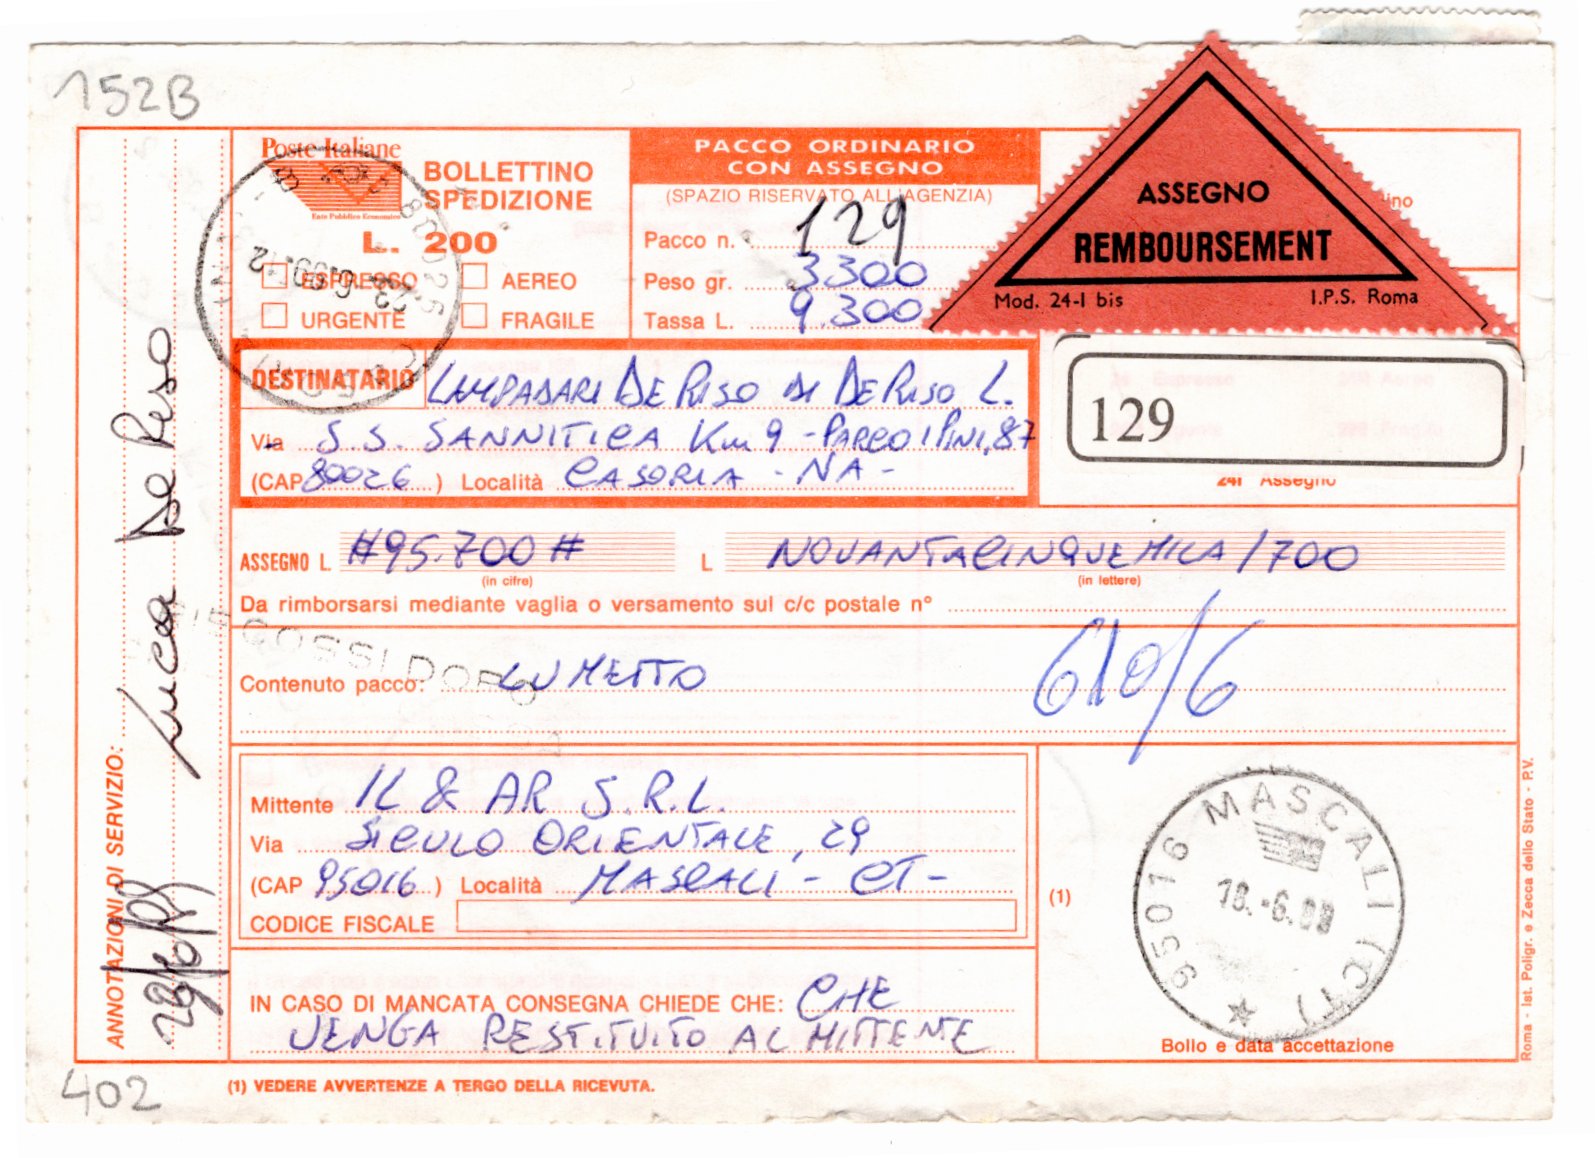 152B
Poste Italiane
Ente Pubblico Economico
BOLLETTINO
SPEDIZIONE
L. 200
ESPRESSO
AEREO
URGENTE
FRAGILE
PACCO ORDINARIO
CON ASSEGNO
(SPAZIO RISERVATO ALL'AGENZIA)
Pacco n. 129
Peso gr. 3300
Tassa L. 9.300
ASSEGNO
REMBOURSEMENT
Mod. 24-I bis I.P.S. Roma
DESTINATARIO LAMPADARI DE RISO DI DE RISO L.
Via S.S. SANNITICA Km 9 - PARCO I PINI, 87
(CAP 80026) Località CASORIA - NA -
129
241 Assegno
ASSEGNO L. #95.700# L NOVANTACINQUEMILA/700
(in cifre) (in lettere)
Da rimborsarsi mediante vaglia o versamento sul c/c postale n°
Contenuto pacco: LUMETTO
610/6
Mittente IL & AR S.R.L.
Via SICULO ORIENTALE, 29
(CAP 95016) Località MASCALI - CT -
CODICE FISCALE
(1)
95016 MASCALI (CT)
18.-6.98
Bollo e data accettazione
IN CASO DI MANCATA CONSEGNA CHIEDE CHE: CHE
VENGA RESTITUITO AL MITTENTE
ANNOTAZIONI DI SERVIZIO:
Luca De Riso
Roma - Ist. Poligr. e Zecca dello Stato - P.V.
402
(1) VEDERE AVVERTENZE A TERGO DELLA RICEVUTA.